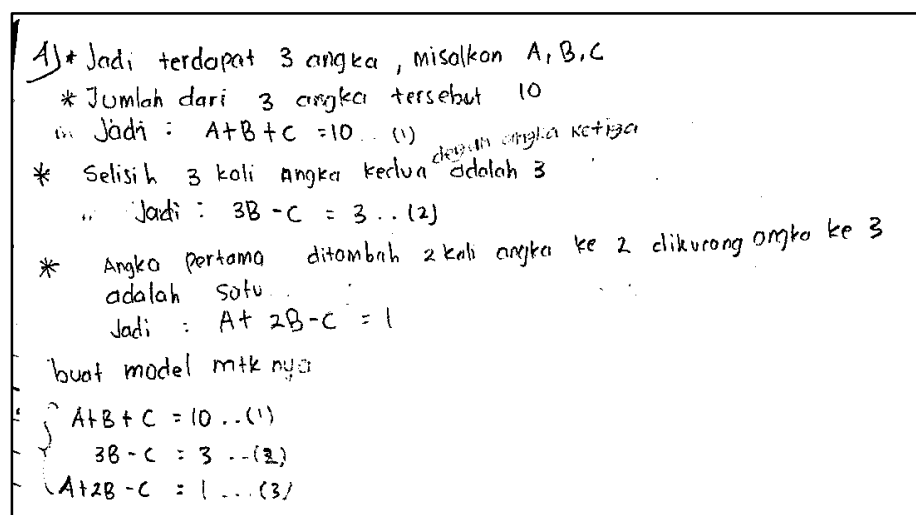 A)* Jadi terdapat 3 angka, misalkan A, B, C
* Jumlah dari 3 angka tersebut 10
Jadi : A+B+C = 10 .. (1)
dengan angka ketiga
* Selisih 3 kali angka kedua adalah 3
Jadi : 3B - C = 3 .. (2)
* Angka pertama ditambah 2 kali angka ke 2 dikurang angka ke 3
adalah satu
Jadi : A + 2B - C = 1
buat model mtk nya
A+B+C = 10 ..(1)
3B - C = 3 ..(2)
A+2B - C = 1 ...(3)